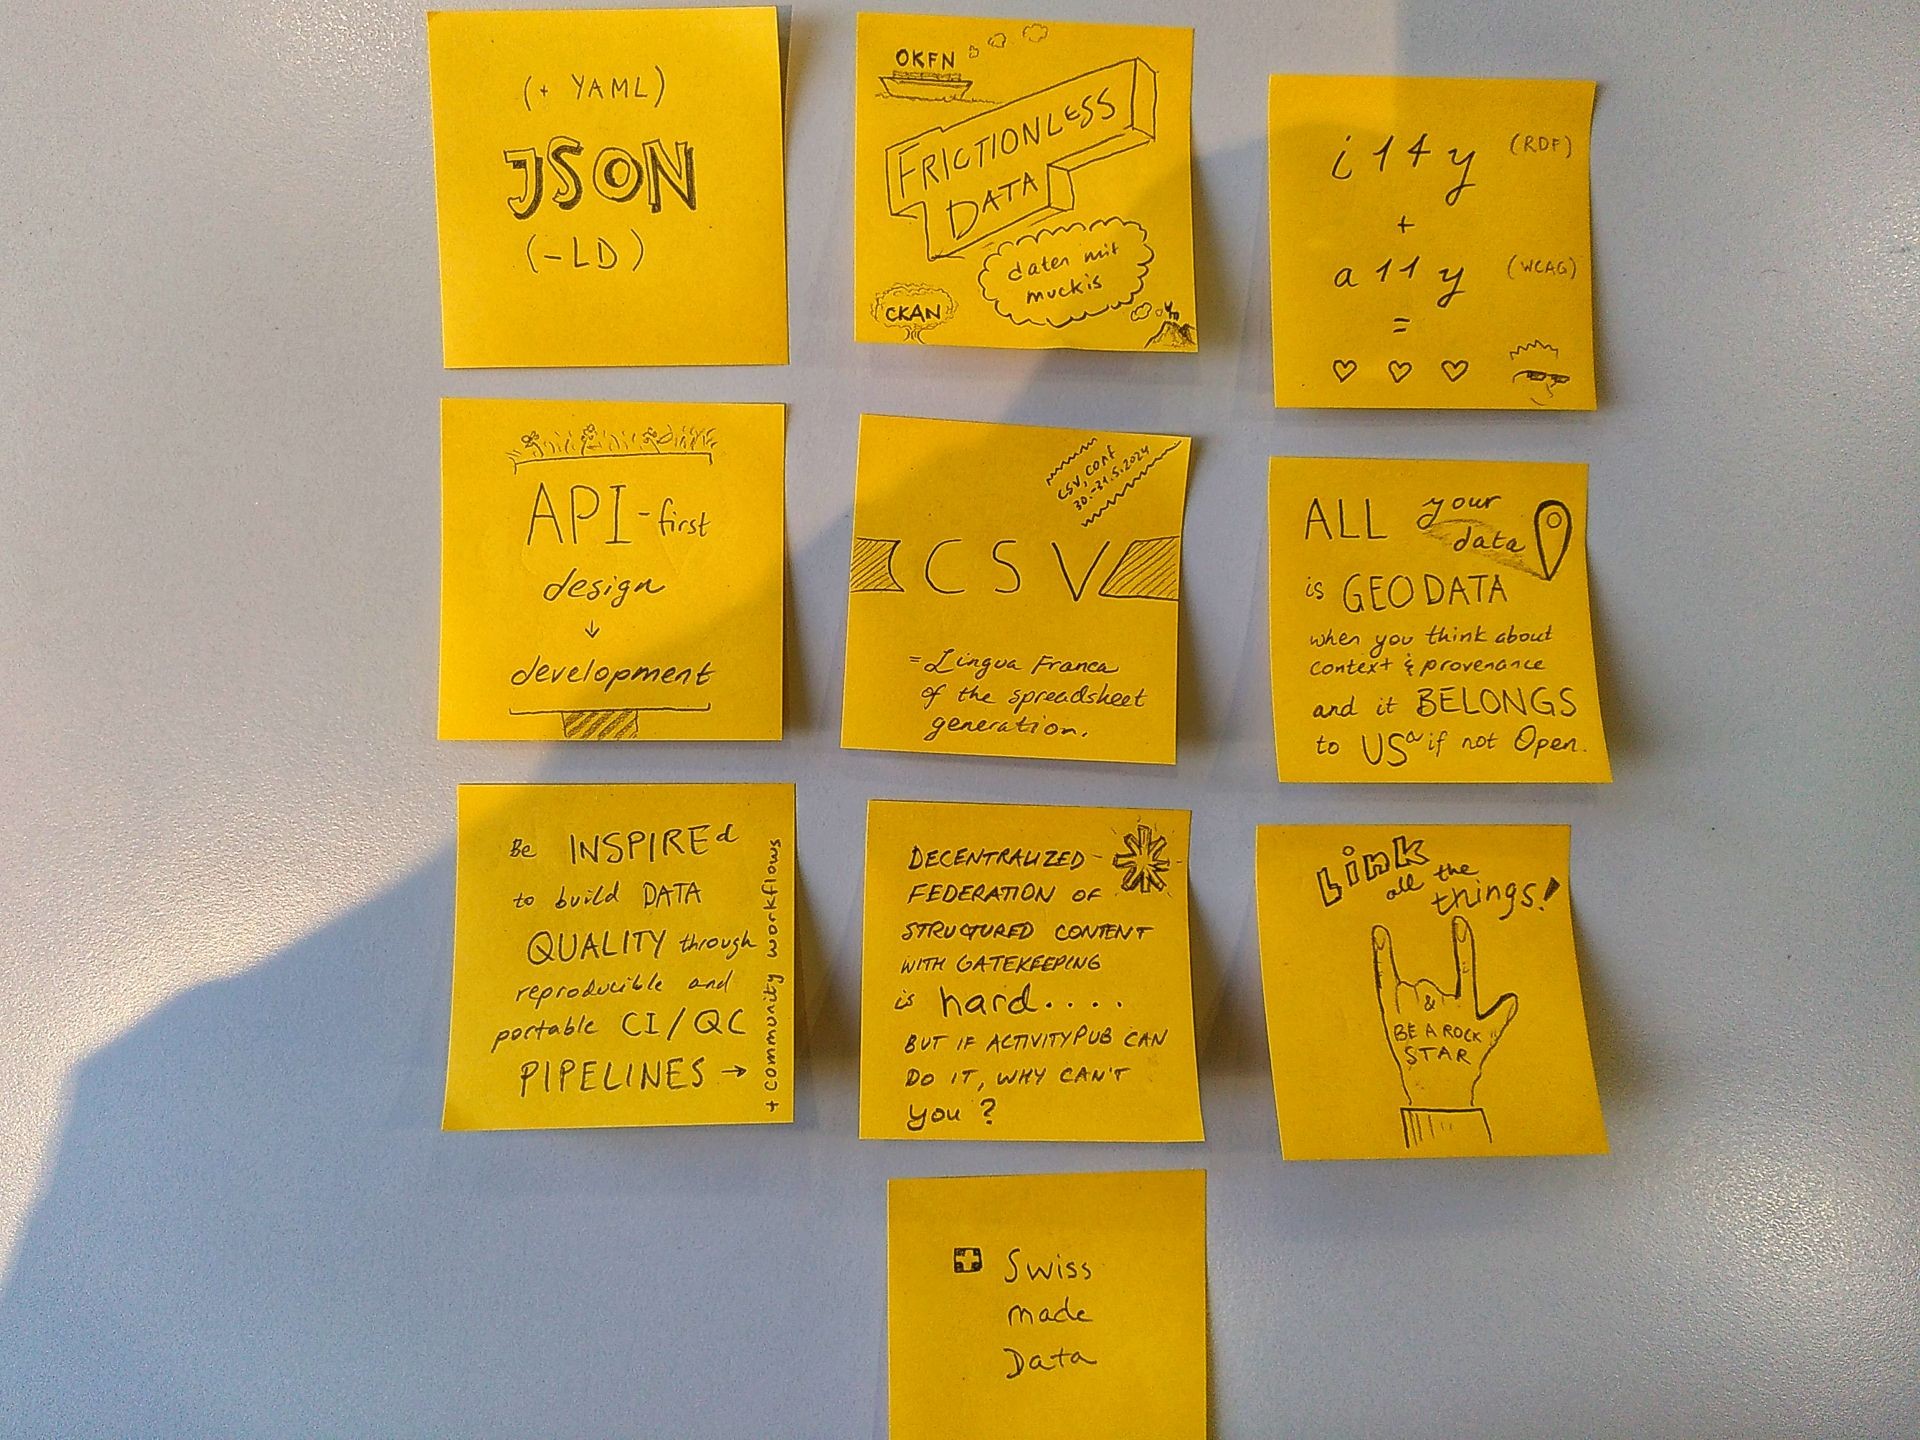 (+ YAML)
JSON
(-LD)
OKFN
FRICTIONLESS
DATA
daten mit
muckis
CKAN
i14y (RDF)
+
a11y (WCAG)
=
♡ ♡ ♡
API-first
design
↓
development
csv,conf
30.-31.5.2024
CSV
= Lingua Franca
of the spreadsheet
generation.
ALL your
data
is GEODATA
when you think about
context & provenance
and it BELONGS
to US if not Open.
Be INSPIREd
to build DATA
QUALITY through
reproducible and
portable CI/QC
PIPELINES →
+ community workflows
DECENTRALIZED
FEDERATION OF
STRUCTURED CONTENT
WITH GATEKEEPING
is hard....
BUT IF ACTIVITYPUB CAN
DO IT, WHY CAN'T
you?
Link
all the
things!
&
BE A ROCK
STAR
Swiss
made
Data